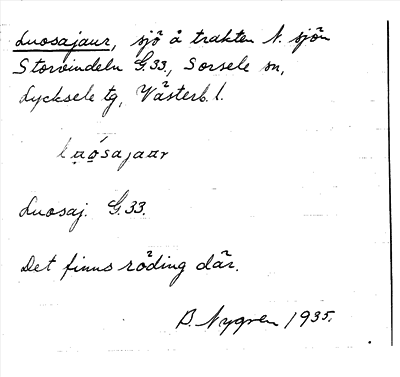 Luosajaur, sjö å trakten N. sjön
Storvindeln G.33., Sorsele sn,
Lycksele tg, Västerb. l.
Luosaj. G.33.
Det finns röding där.
B. Nygren 1935.